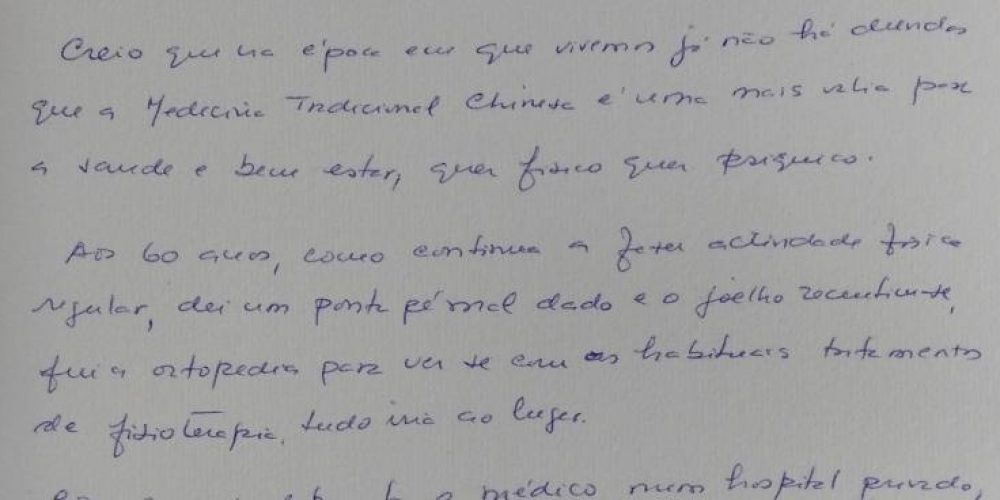 Creio que na época em que vivemos já não há dúvidas
que a Medicina Tradicional Chinesa é uma mais valia para
a saude e bem estar, quer fisico quer psiquico.
Aos 60 anos, como continua a fazer actividade fisica
regular, dei um ponta pé mal dado e o joelho
fui a ortopedia para ver se com os habituais tratamentos
de fisioterapia, tudo iria ao lugar.
médico num hospital privado,